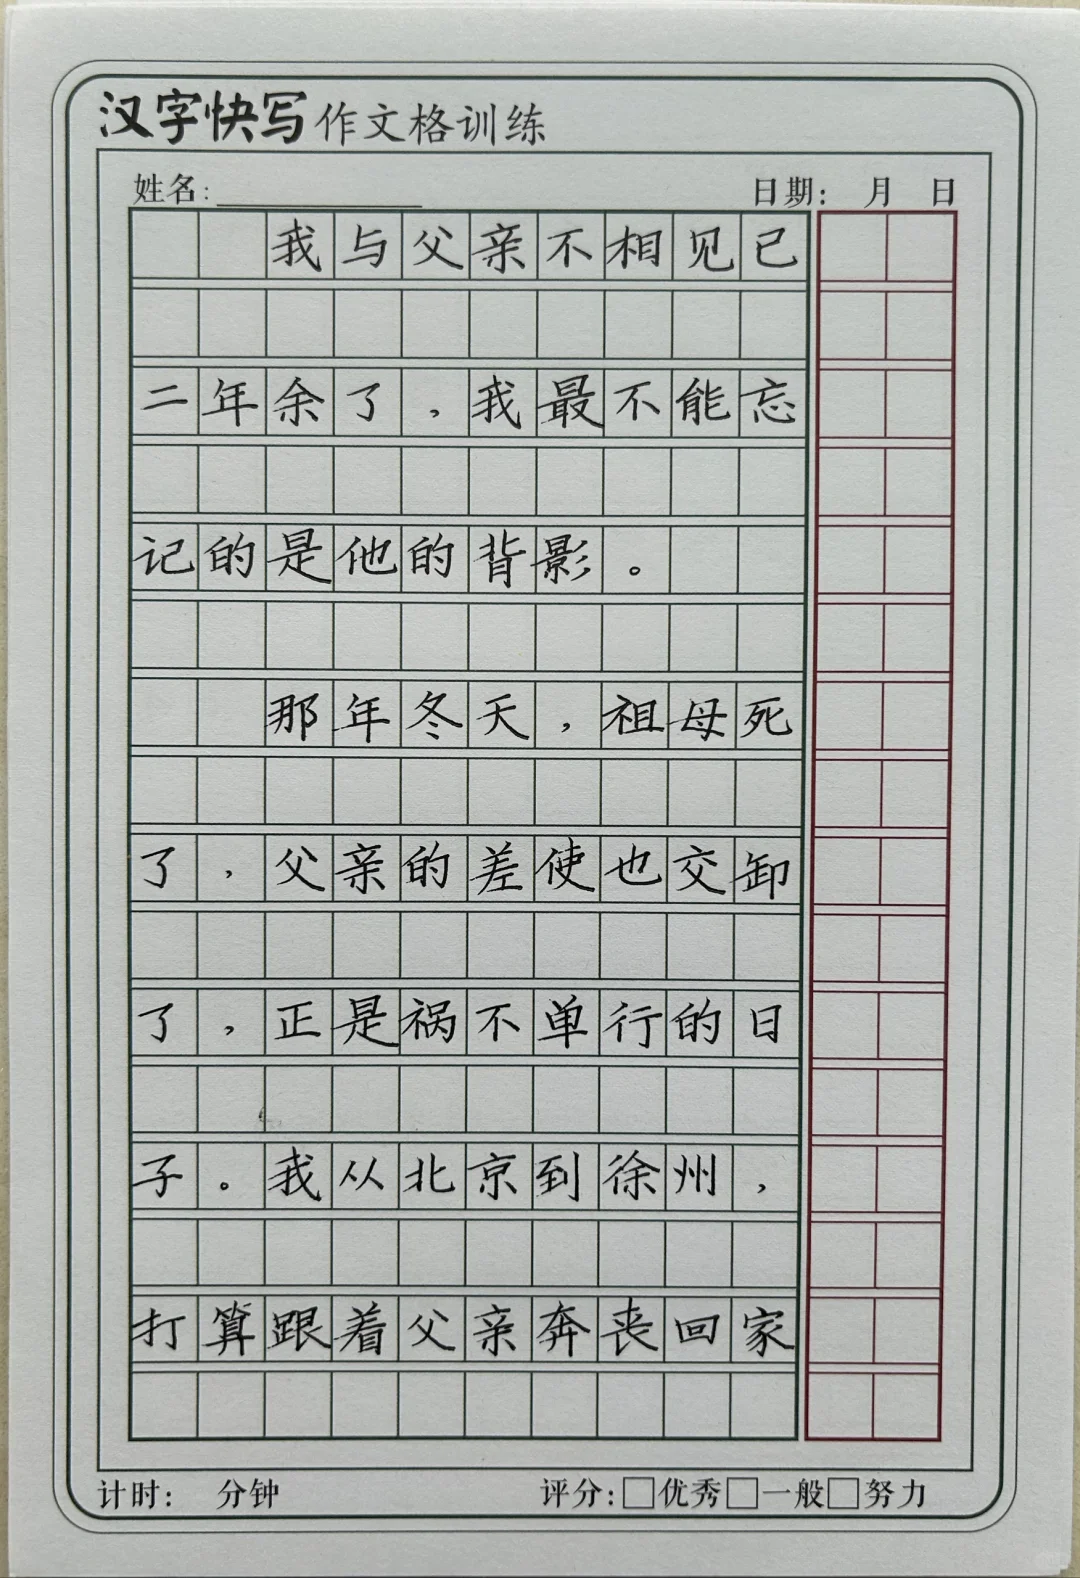 汉字快写作文格训练
姓名: 日期: 月 日
我与父亲不相见已
二年余了，我最不能忘
记的是他的背影。
那年冬天，祖母死
了，父亲的差使也交卸
了，正是祸不单行的日
子。我从北京到徐州，
打算跟着父亲奔丧回家
计时: 分钟 评分:□优秀□一般□努力